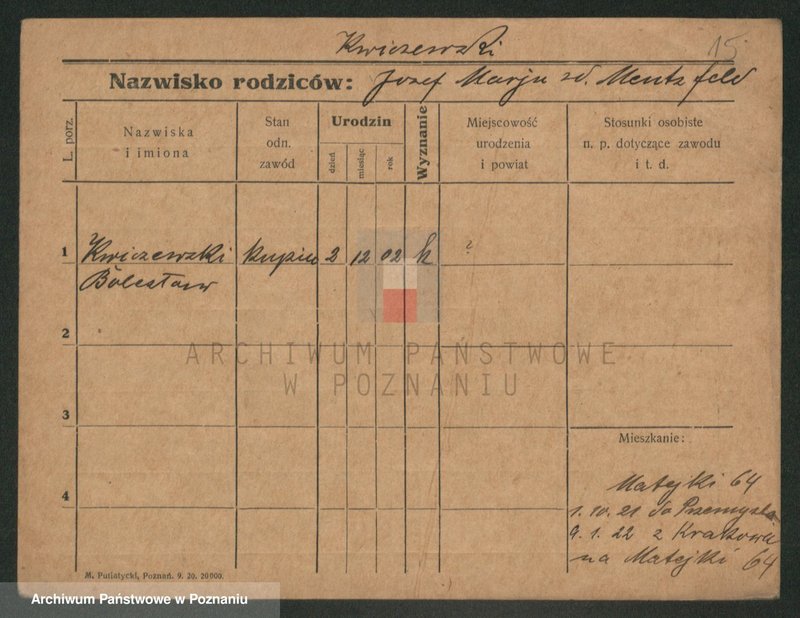 Kwiczewski
15
Nazwisko rodziców: Josef Marju zd. Mentzfeld
L. porz.
Nazwiska
i imiona
Stan
odn.
zawód
Urodzin
dzień
miesiąc
rok
Wyznanie
Miejscowość
urodzenia
i powiat
Stosunki osobiste
n. p. dotyczące zawodu
i t. d.
1 Kwiczewski kupiec 2 12 02 k ?
Bolesław
2
3
4
Mieszkanie:
Matejki 64
1.10.21 do Przemyśla
9.1.22 z Krakowa
na Matejki 64
ARCHIWUM PAŃSTWOWE
W POZNANIU
M. Putiatycki, Poznań. 9. 20. 20000.
Archiwum Państwowe w Poznaniu